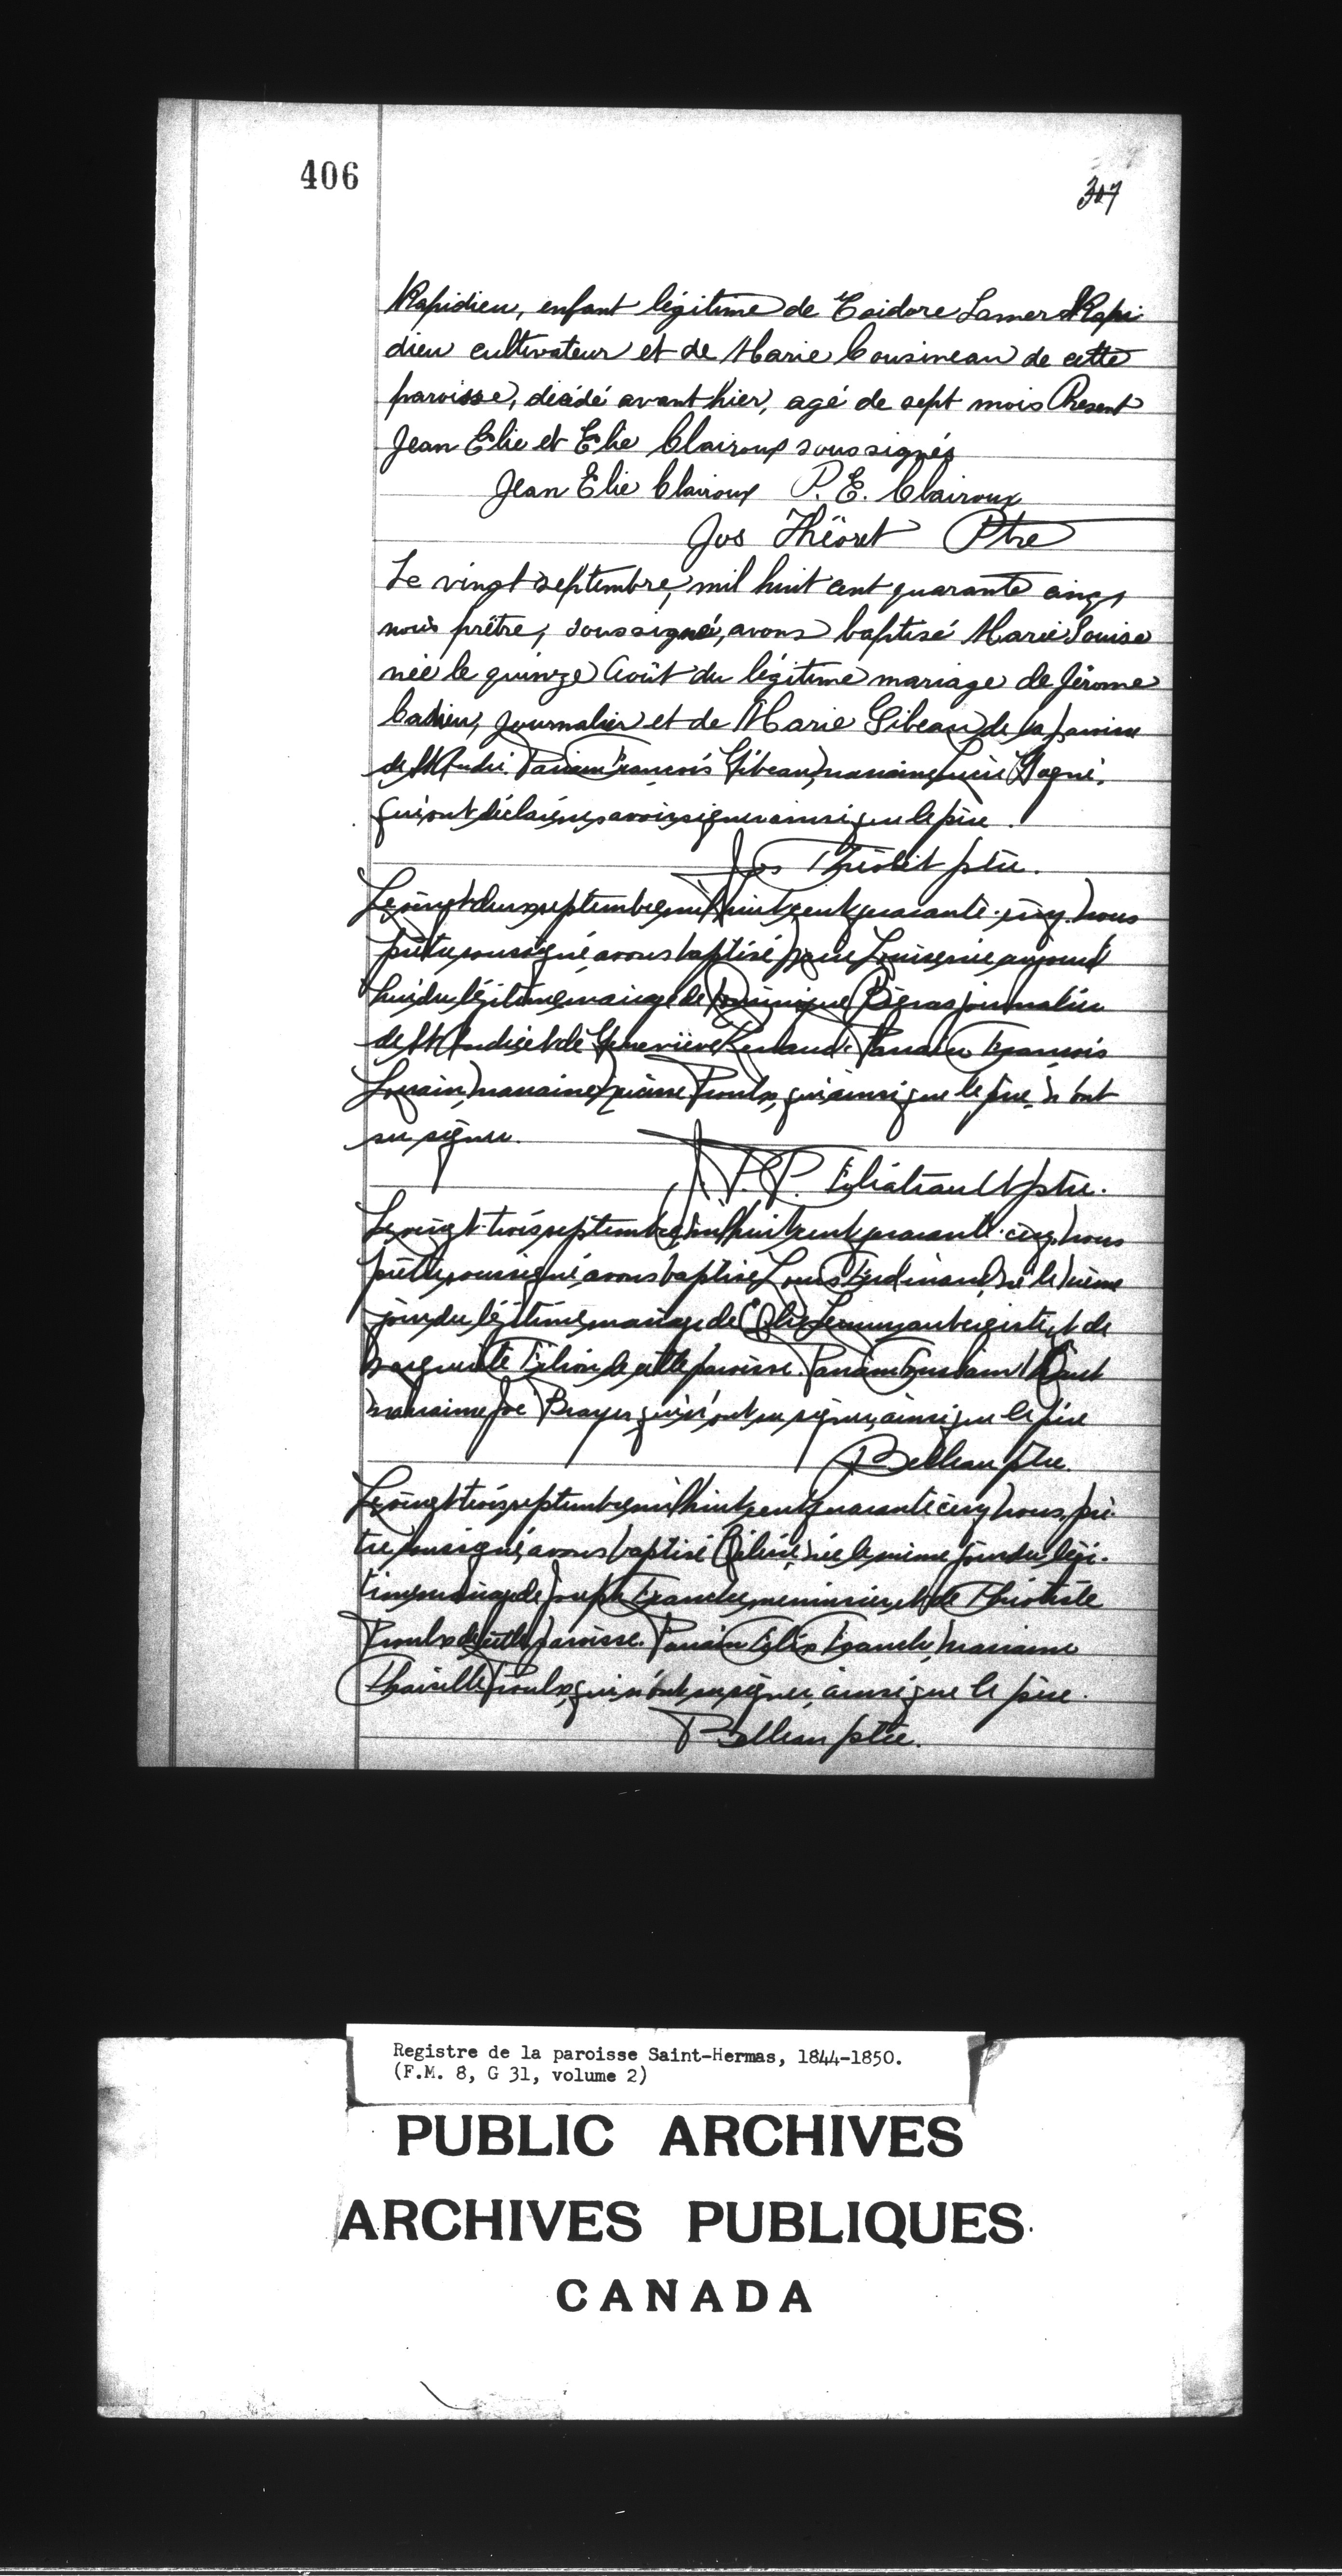 406
307
StRapidieu, enfant légitime de Isidore Lamer StRapi
dieu cultivateur et de Marie Cousineau de cette
paroisse, décédé avant hier, agé de sept mois Présent
Jean Elie et Elie Clairoux soussignés
Jean Elie Clairoux P. E. Clairoux
Jos Théoret Ptre
Le vingt septembre, mil huit cent quarante cinq,
nous prêtre, soussigné, avons baptisé Marie Louise
née le quinze Août du légitime mariage de Jérome
Cadieu, Journalier et de Marie Gibeau de la paroisse
de St André. Parrain François Gibeau, marraine Gagné,
qui ont déclaré ne savoir signer ainsi que le père.
Jos Théoret ptre.
Le vingt deux septembre mil huit cent quarante-cinq, nous
prêtre soussigné avons baptisé Louise née aujourd'
hui du légitime mariage de Dominique journalier
de St André et de Geneviève Renaud. Parrain François
Lorrain, marraine Proulx, qui ainsi que le père n'ont
su signer.
P. Filiatrault ptre.
Le vingt-trois septembre mil huit cent quarante-cinq, nous
prêtre soussigné avons baptisé Louis Ferdinand, né le même
jour du légitime mariage de aubergiste, et de
Marguerite Filion de cette paroisse. Parrain
marraine qui n'ont su signer, ainsi que le père
Belleau ptre.
Le vingt trois septembre mil huit cent quarante cinq nous, prê-
tre soussigné, avons baptisé née le même jour du légi-
time mariage de Joseph Franche menuisier, et de Théotiste
Proulx de cette paroisse. Parrain Félix Franche, marraine
Proulx, qui n'ont su signer ainsi que le père.
Belleau ptre.
Registre de la paroisse Saint-Hermas, 1844-1850.
(F.M. 8, G 31, volume 2)
PUBLIC ARCHIVES
ARCHIVES PUBLIQUES
CANADA